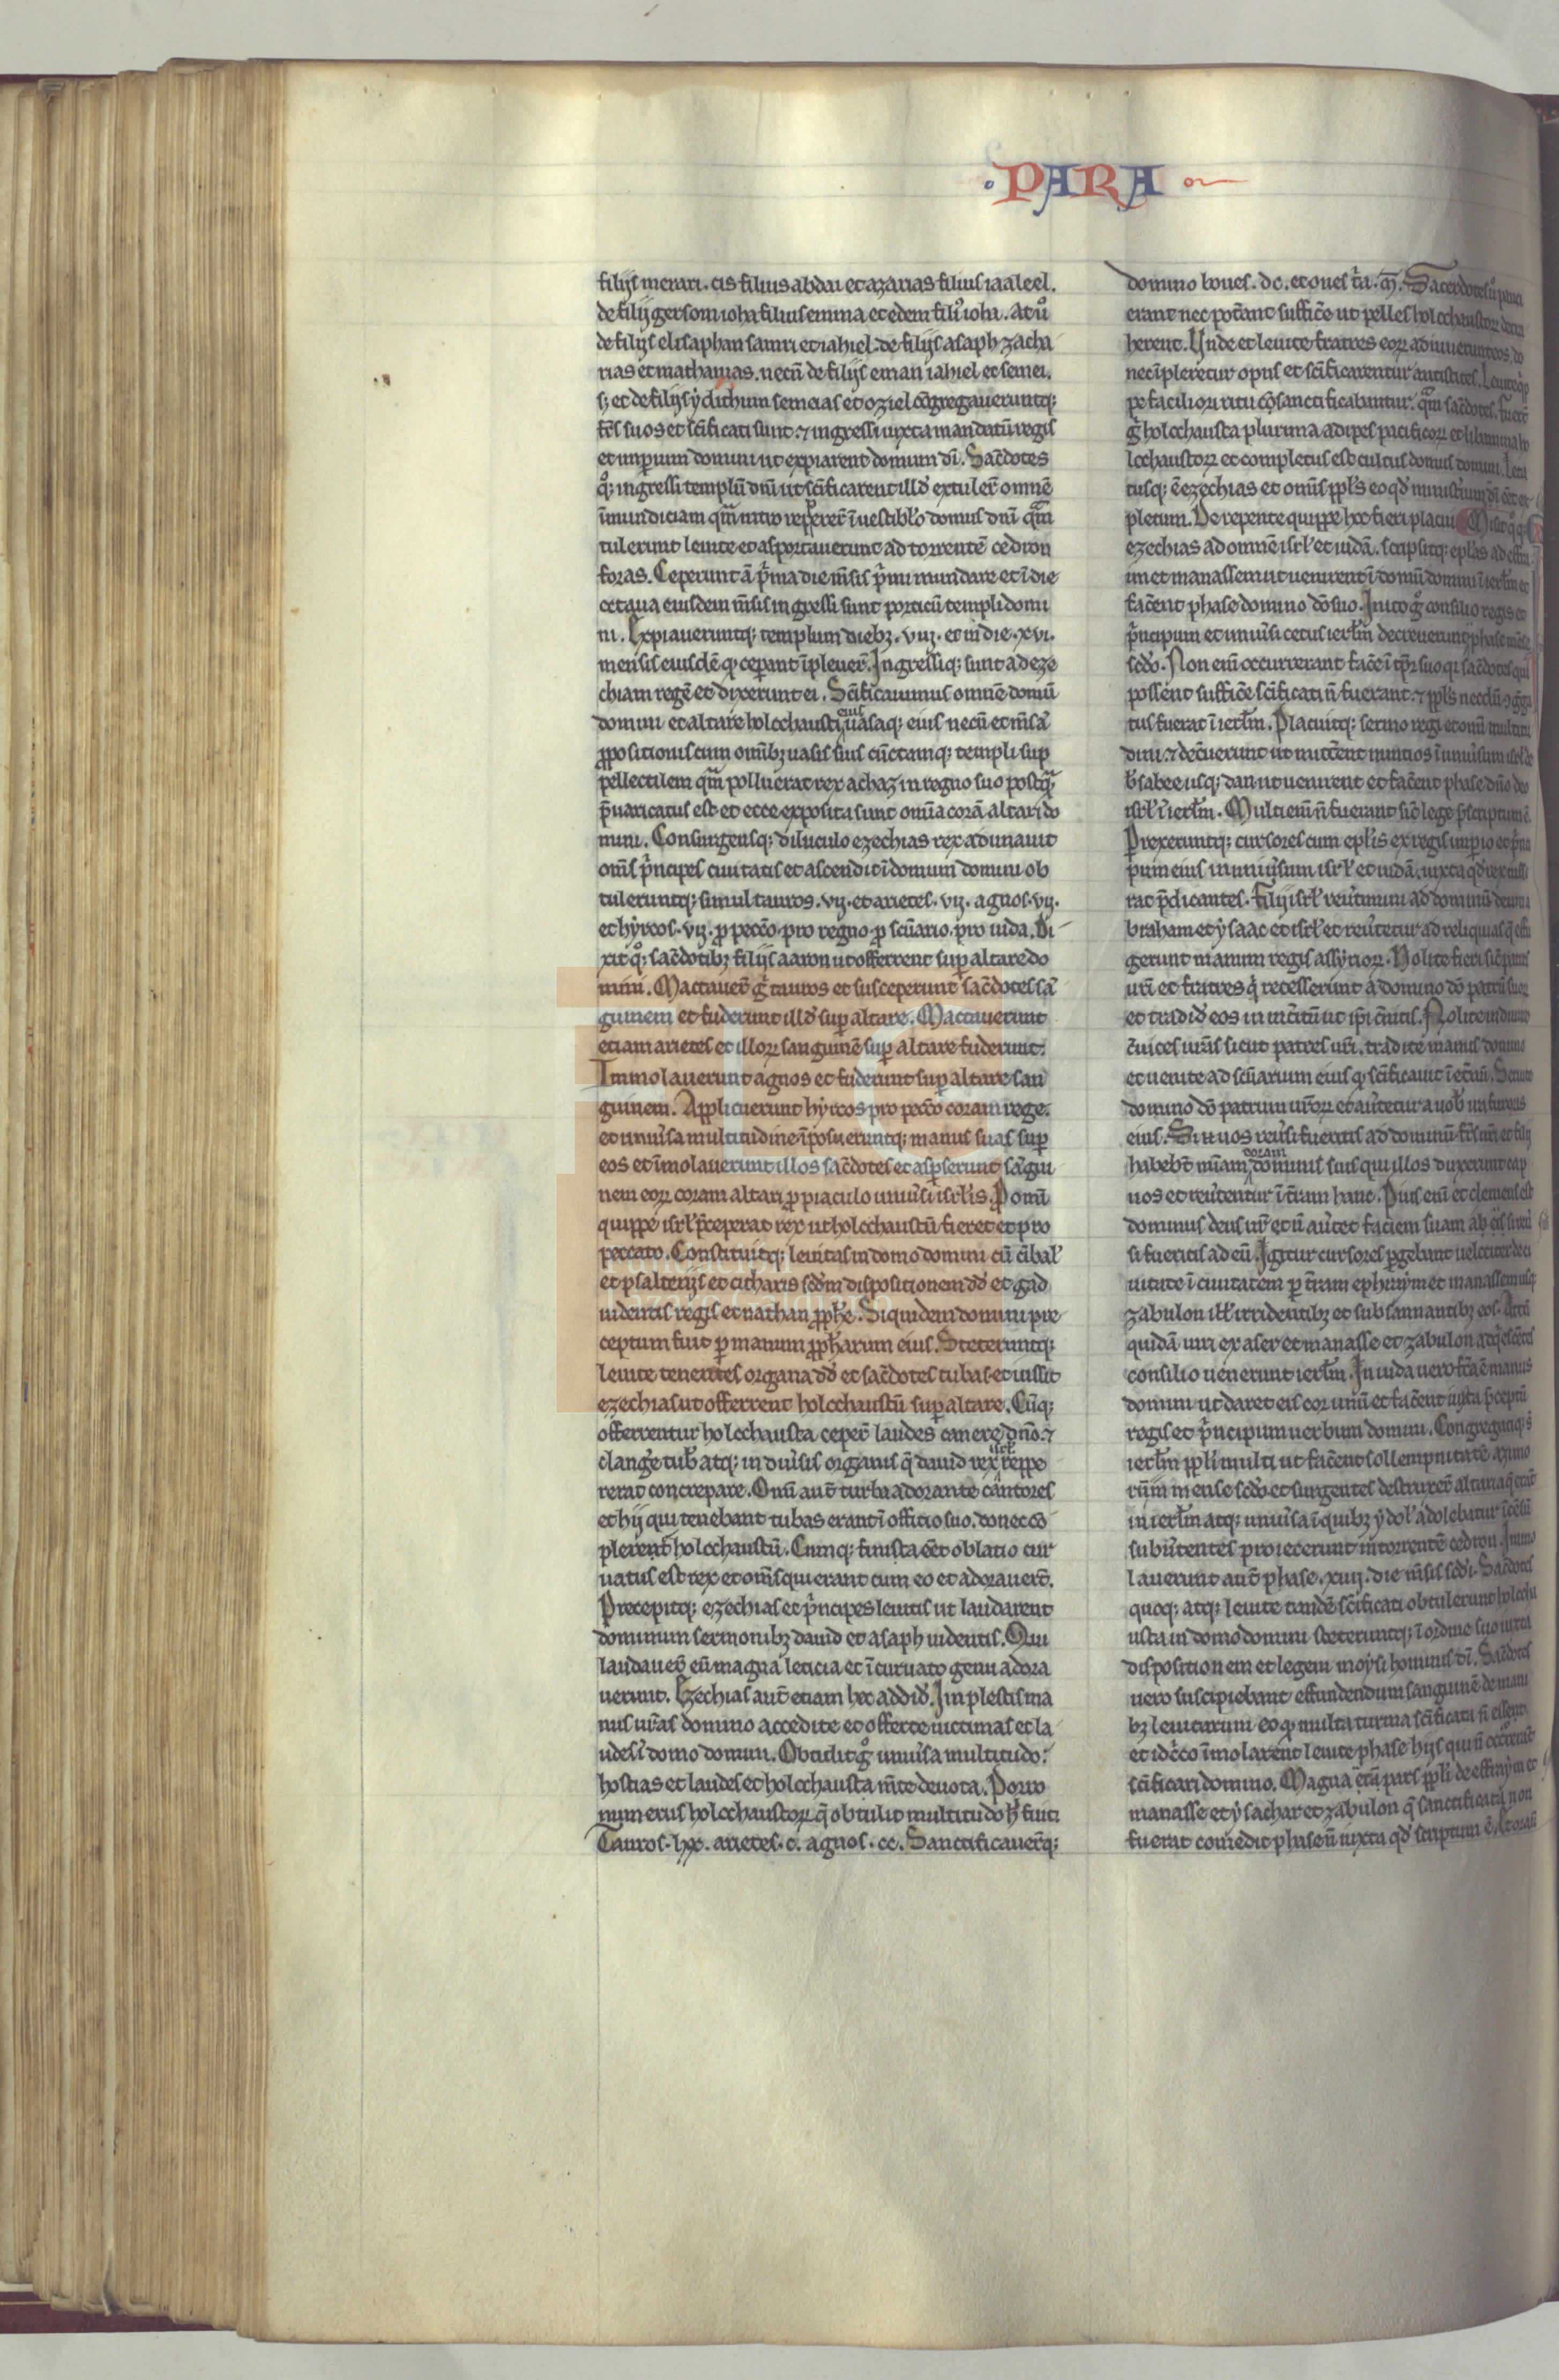 PARA
filijs merari. cis filius abdai et azarias filius iaaleel.
de filijs gersom ioha filius emma et edem fili᷒ ioha. At ů
de filijs elisaphan samri et iahiel. de filijs asaph zacha
rias et mathanias. necñ de filijs eman iahiel et semei.
s; et de filijs ydithum semeias et oziel cōgregaueruntq;
fr̄s suos et sc̄ificati sunt. ⁊ ingressi iuxta mandatū regis
et imꝑium domini ut expiarent domum dī. Sac̄dotes
q̊; ingressi templū dn̄i ut sc̄ificarent illđ extuler̄ omnē
īmundiciam qm̄ intro repperer̄ ī uestibl̓o domus dn̄i qm̄
tulerunt leuite et asportauerunt ad torrentē cedron
foras. Ceperunt ā p̄ma die m̄sis p̄mi mundare et ī die
octaua eiusdem m̄sis ingressi sunt porticū templi domi
ni. Expiaueruntq; templum diebꝫ. viij. et in die. xvi.
mensis eiusdē qͥ ceperant īpleuer̄. Ingressiq; sunt ad eze
chiam regē et dixerunt ei. Sc̄ificauimus omnē domū
domini et altare holochausti eius uasaq; eius necñ et m̄sā
ꝓpositionis cum om̄ibꝫ uasis suis cūctamq; templi sup
pellectilem qm̄ polluerat rex achaz in regno suo postq̄
p̄uaricatus est et ecce exposita sunt om̄ia corā altari do
mini. Consurgensq; diluculo ezechias rex adunauit
om̄s p̄ncipes ciuitatis et ascendit ī domum domini ob
tuleruntq; simul tauros. vij. et arietes. vij. agnos. vij.
et hyrcos. vij. ꝓ pecc̄o. pro regno. ꝓ sc̄uario. pro iuda. Di
xit q̊; sac̄dotibꝫ filijs aaron ut offerrent suꝑ altare do
mini. Mactauer̄ g̊ tauros et susceperunt sac̄dotes sā
guinem et fuderunt illđ suꝑ altare. Mactauerunt
etiam arietes et illoꝝ sanguinē suꝑ altare fuderunt.
Immolauerunt agnos et fuderunt suꝑ altare san
guinem. Applicuerunt hyrcos pro pecc̄o coram rege.
et uniūsa multitudine īposueruntq; manus suas suꝑ
eos et īmolauerunt illos sac̄dotes et asꝑserunt sāgui
nem eoꝝ coram altari ꝓ piaculo uniūsi isrl̓is. Pro om̄i
quippe isrl̓ p̄ceperat rex ut holochaustū fieret et pro
peccato. Constituitq; leuitas in domo domini cū cībal̓
et psalterijs et citharis sc̄dm dispositionem dd̓ et gad
uidentis regis et nathan ꝓph̄e. Siquidem domini pre
ceptum fuit ꝑ manum ꝓph̄arum eius. Steteruntq;
leuite tenentes organa dd̓ et sac̄dotes tubas. et iussit
ezechias ut offerrent holochaustū suꝑ altare. Cūq;
offerrentur holochausta ceper̄ laudes canere dn̄o. ⁊
clange tub̓ atq; in diūsis organis q̄ dauid rex isrl̓ reppe
rerat concrepare. Omī aut̄ turba adorante cantores
et hij qui tenebant tubas erant ī officio suo. donec cō
plerent̄ holochaustū. Cumq; finita eēt oblatio cur
uatus est rex et om̄s qui erant cum eo et adorauer̄t.
Precepitq; ezechias et p̄ncipes leuitis ut laudarent
dominum sermonibꝫ dauid et asaph uidentis. Qui
laudauer̄ eū magna leticia et īcuruato genu adora
uerunt. Ezechias aut̄ etiam hec addid̓. Implestis ma
nus ur̄as domino accedite et offerte uictimas et la
udes ī domo domini. Obtulit g̊ uniūsa multitudo:
hostias et laudes et holochausta m̄te deuota. Porro
numerus holochaustoꝝ q̄ obtulit multitudo h̓ fuit
Tauros. lxx. arietes. c. agnos. cc. Sanctificauer̄q;
domino boues. dc. et oues tr̄a. m̄. Sacerdotes ů pauci
erant nec pot̄ant suffic̄e ut pelles holochaustoꝝ detra
herent. Unde et leuite fratres eoꝝ adiuuerunt eos do
nec īpleretur opus et sc̄ificarentur antistites. Leuite q̄p
pe faciliori ritu cōsanctificabuntur. qm̄ sac̄dotes. fuer̄
g̊ holochausta plurima adipes pacificoꝝ et libamina ho
lochaustoꝝ et completus est cultus domus domini. Leta
tusq; ē ezechias et om̄is ppl̓s eo qđ ministerium dī eēt ex
pletum. De repente quippe hoc fieri placuit Misit q̊q;
ezechias ad omnē isrl̓ et iudā. scripsitq; epl̓as ad effra
im et manassem ut uenirent ī domū domini ī ierl̓m et
fac̄ent phase domino dō suo. Inito g̊ consilio regis et
p̄ncipum et uniūsi cetus ierl̓m decreuerunt phase mēse
sc̄do. Non enī occurrerant fac̄e ī tp̄r suo qꝛ sac̄dotes qui
possent suffic̄e sc̄ificati ñ fuerant. ⁊ ppl̓s necdū ꝯg̊ga
tus fuerat ī ierl̓m. Placuitq; sermo regi et omī multitu
dini. ⁊ dec̄uerunt ut mitt̄ent nuntios ī uniūsum isrl̓ de
b̓sabee usq; dan ut uenirent et fac̄ent phase dn̄o deo
isrl̓ ī ierl̓m. Multi enī ñ fuerant sic̄ lege p̄scriptum ē.
Perrexeruntq; cursores cum epl̓is ex regis imꝑio et p̄nci
pum eius in uniūsum isrl̓ et iudā. iuxta qđ rex iusse
rat p̄dicantes. Filij isrl̓ reūtimini ad dominū deum a
braham et ysaac et isrl̓ et reūtetur ad reliquias q̄ effu
gerunt manum regis assyrioꝝ. Nolite fieri sic̄ patres
ur̄i et fratres q̄ recesserunt a domino dō patrū suoꝝ
et tradid̓ eos in inťitū ut ip̄i c̄nitis. Nolite indurare
c̄uices ur̄as sicut patres ur̄i. tradite manus domino
et uenite ad sc̄uarium eius qͥ sc̄ificauit ī et̄nū. Seruite
domino dō patrum ur̄oꝝ et aūtetur a uob̓ ira furoris
eius. Si uos reūsi fueritis ad dominū fr̄s ur̄i et filij
habebt̄ mīam coram dominis suis qui illos duxerunt cap
uos et reūtentur ī tr̄am hanc. Pius enī et clemens est
dominus deus ur̄ et ñ aūtet faciem suam ab eis si reū
si fueritis ad eū. Igitur cursores ꝑgebant uelociter de ci
uitate ī ciuitatem ꝑ tr̄am ephraym et manassem usq;
zabulon ill̓ irridentibꝫ et subsannantibꝫ eos. Attñ
quidā uiri ex aser et manasse et zabulon adq̄escētes
consilio uenerunt ierl̓m. In iuda uero fc̄a ē manus
domini ut daret eis cor unū et fac̄ent iuxta p̄ceptū
regis et p̄ncipum uerbum domini. Congregatiq; s̄
ierl̓m ppl̓i multi ut fac̄ent sollempnitatē azimo
rūm mense sc̄do et surgentes destruxer̄ altaria q̄ erāt
in ierl̓m atq; uniūsa ī quibꝫ ydol̓ adolebatur īcēsū
subūtentes proiecerunt in torrentē cedron. Immo
lauerunt aut̄ phase. xiiij. die m̄sis sc̄di. Sac̄dotes
quoq; atq; leuite tandē sc̄ificati obtulerunt holocha
usta in domo domini steteruntq; ī ordine suo iuxta
dispositionem et legem moysi hominis dī. Sac̄dotes
uero suscipiebant effundendum sanguinē de mani
bꝫ leuitarum eo qͥ multa turma sc̄ificata ñ esset
et idc̄co īmolarent leuite phase hijs qui ñ occ̄rerāt
sc̄ificari domino. Magna etiā pars ppl̓i de effraym et
manasse et ysachar et zabulon q̄ sanctificata non
fuerat comedit phase ñ iuxta qđ scriptum ē. Et orauit